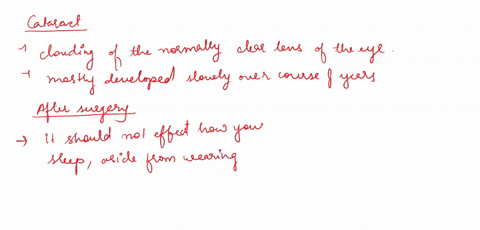 Cataract
→ clouding of the normally clear lens of the eye.
→ mostly developed slowly over course of years
After surgery
→ it should not effect how you
sleep, aside from wearing